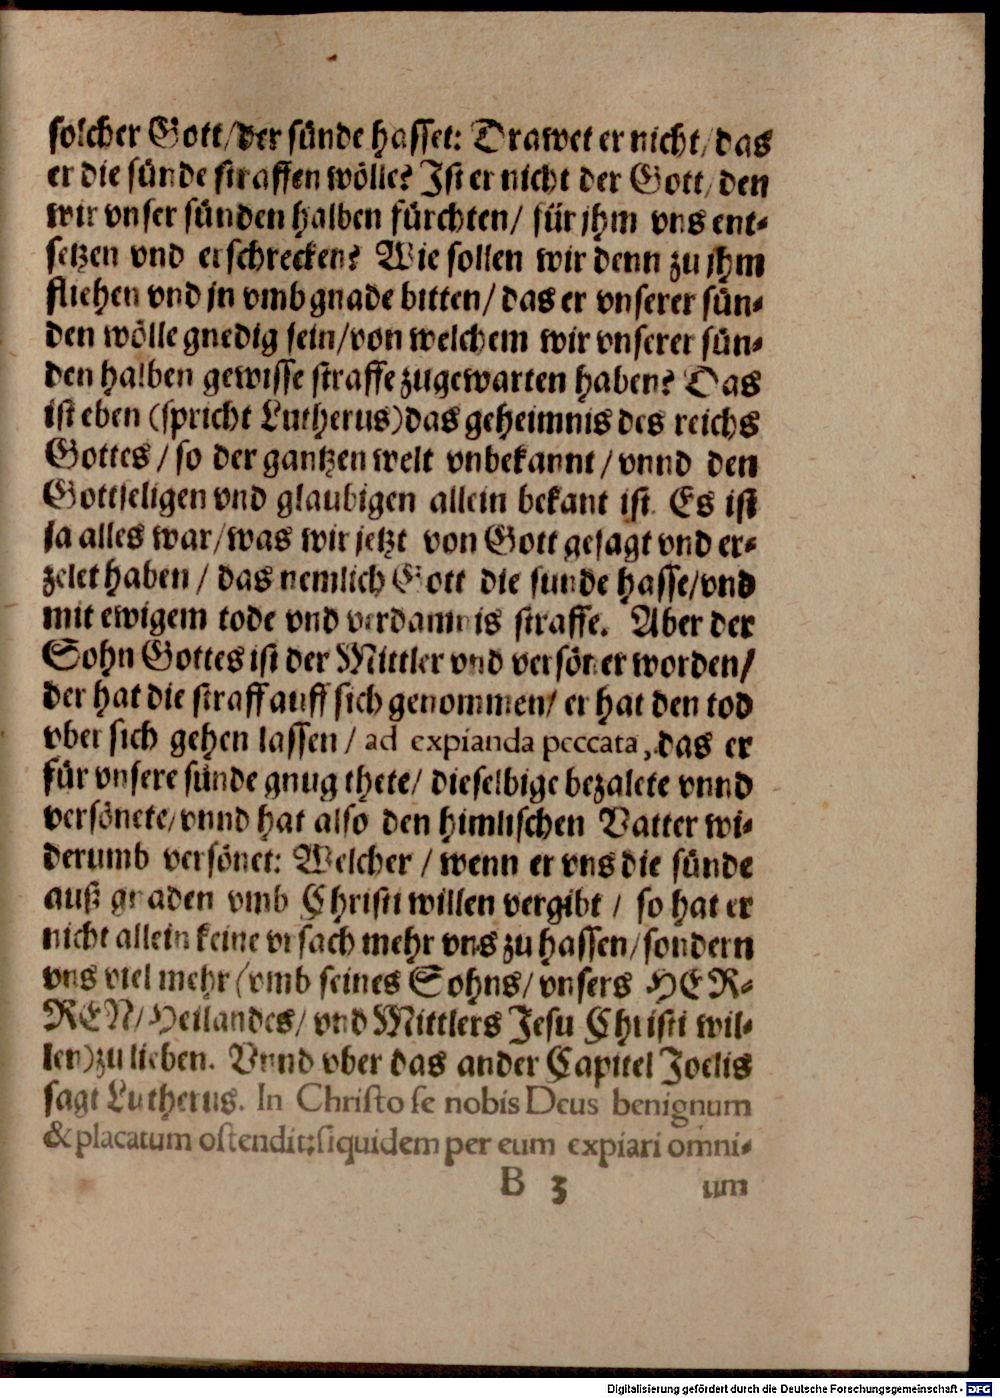 solcher Gott/der sünde hasset: Drawet er nicht/das
er die sünde straffen wölle? Ist er nicht der Gott/den
wir vnser sünden halben fürchten/ für jhm vns ent-
setzen vnd erschrecken? Wie sollen wir denn zu jhm
fliehen vnd jn vmb gnade bitten/ das er vnserer sün-
den wölle gnedig sein/von welchem wir vnserer sün-
den halben gewisse straffe zugewarten haben? Das
ist eben (spricht Lutherus) das geheimnis des reichs
Gottes/ so der gantzen welt vnbekannt/ vnnd den
Gottseligen vnd glaubigen allein bekant ist. Es ist
ja alles war/was wir jetzt von Gott gesagt vnd er-
zelet haben/ das nemlich Gott die sunde hasse/vnd
mit ewigem tode vnd verdamnis straffe. Aber der
Sohn Gottes ist der Mittler vnd versöner worden/
der hat die straff auff sich genommen/ er hat den tod
vber sich gehen lassen/ ad expianda peccata, das er
für vnsere sünde gnug thete/ dieselbige bezalete vnnd
versönete/vnnd hat also den himlischen Vatter wi-
derumb versönet: Welcher/ wenn er vns die sünde
auß gnaden vmb Christi willen vergibt/ so hat er
nicht allein keine vrsach mehr vns zu hassen/sondern
vns viel mehr (vmb seines Sohns/ vnsers HER-
REN/Heilandes/ vnd Mittlers Jesu Christi wil-
len) zu lieben. Vnnd vber das ander Capitel Joelis
sagt Lutherus. In Christo se nobis Deus benignum
& placatum ostendit; siquidem per eum expiari omni-
B 3 um
Digitalisierung gefördert durch die Deutsche Forschungsgemeinschaft - DFG